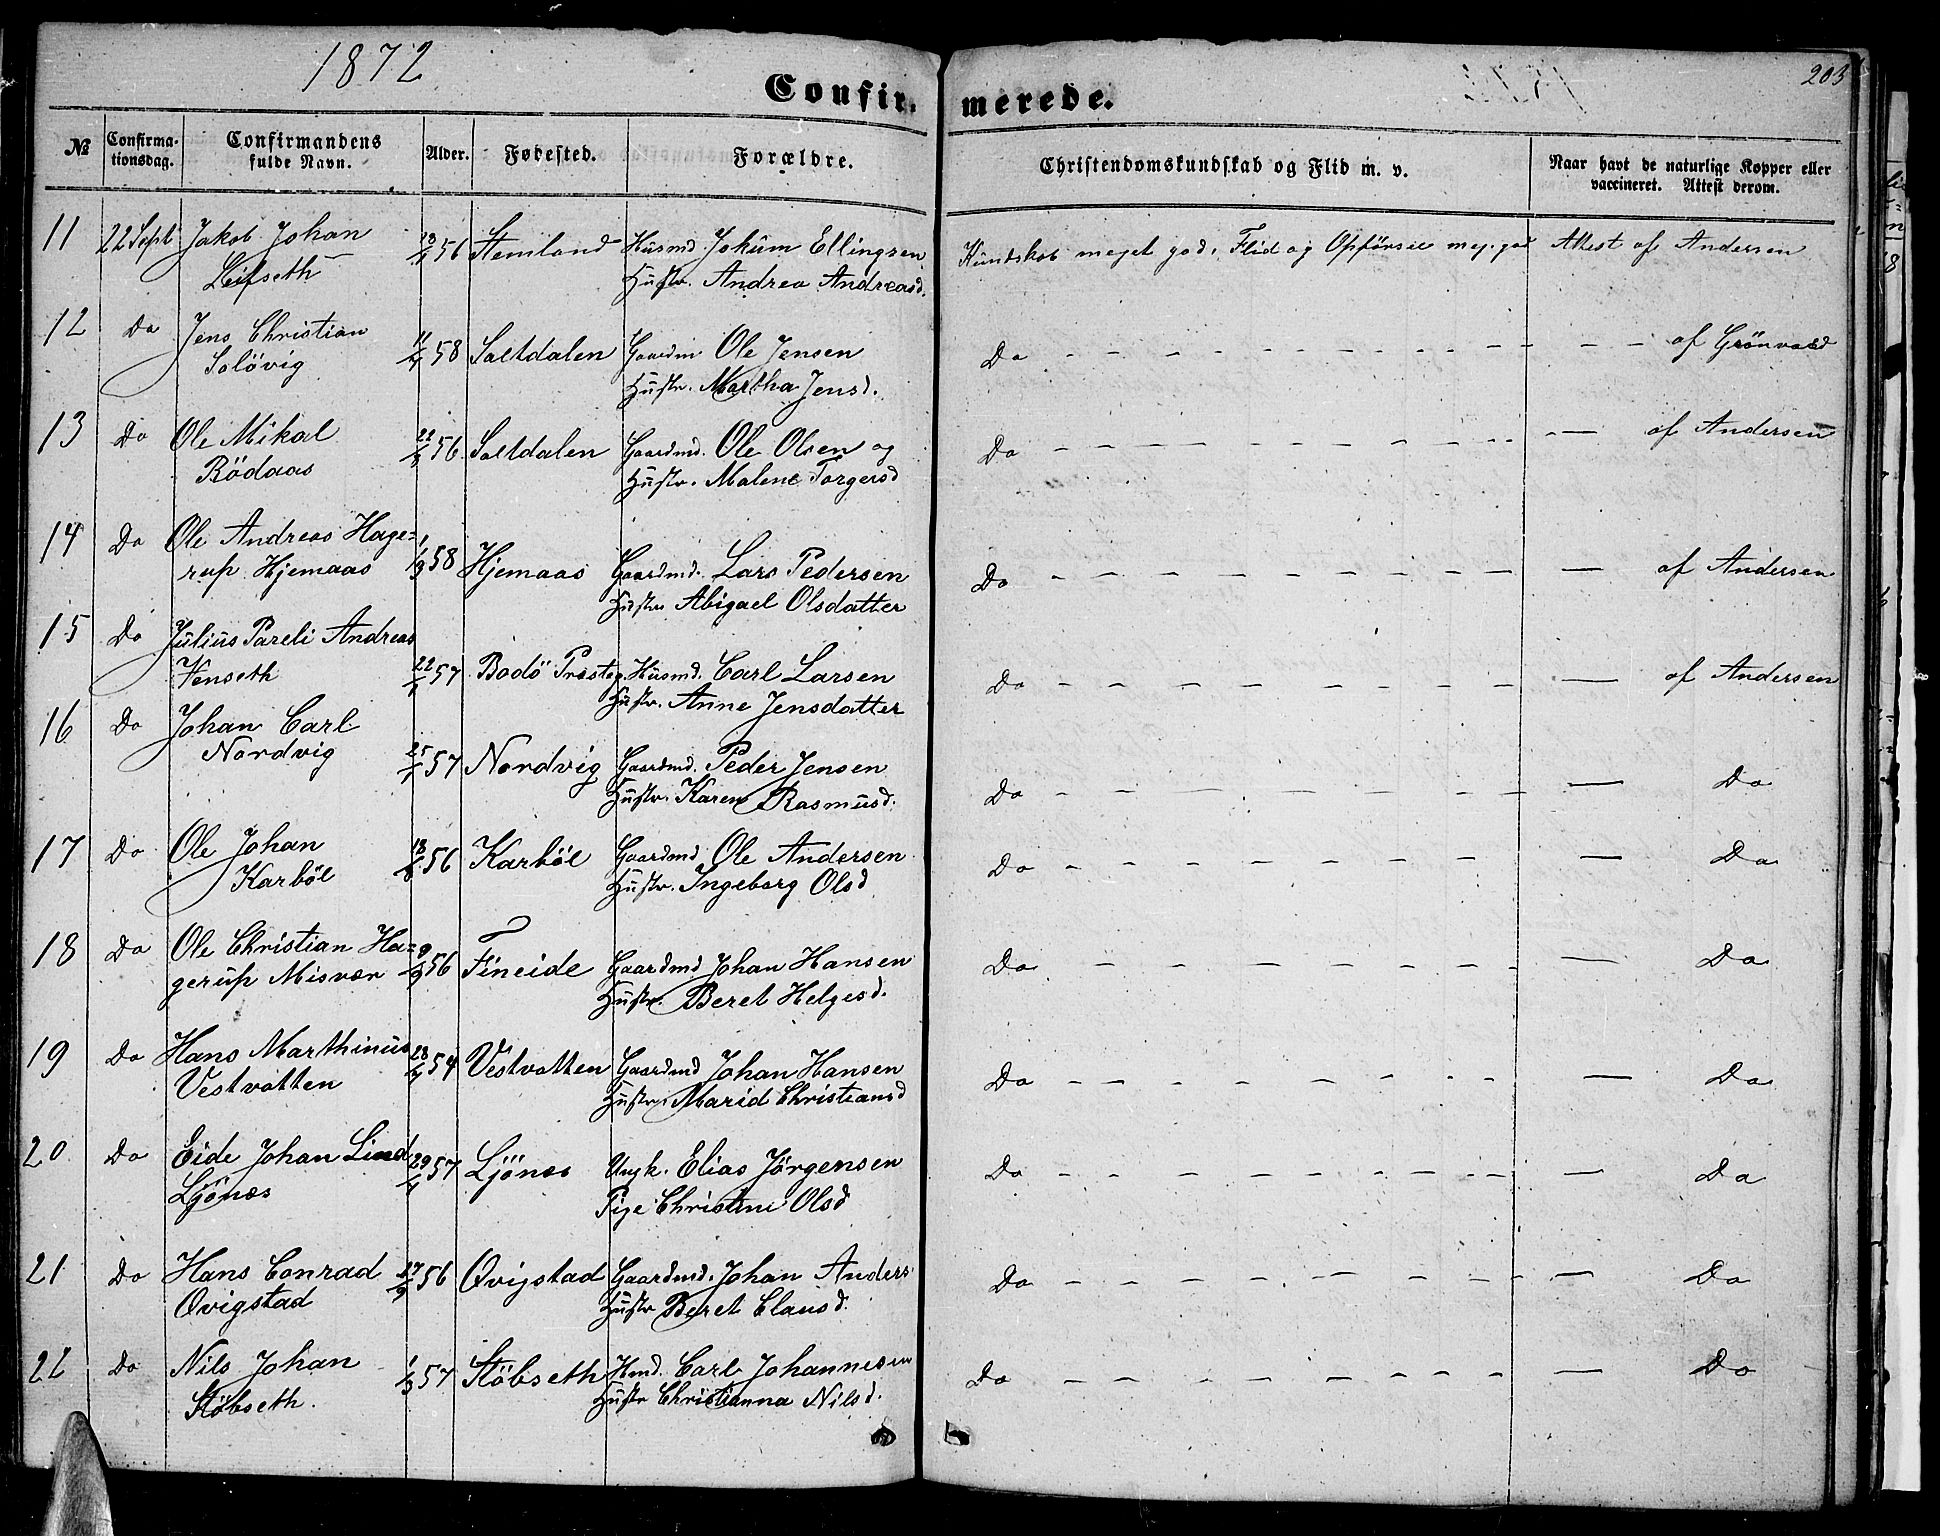 1872
203
Confirmerede.
№
Confirmationsdag.
Confirmandens fulde Navn.
Alder.
Fødested.
Forældre.
Christendomskundskab og Flid m. v.
Naar havt de naturlige Kopper eller vaccineret. Attest derom.
11 22 Sept Jakob Johan 56 Stemland Husmd Jokum Ellingsen Kundskab meget god, Flid og Opførsel meg. god Attest af Andersen
Leifseth Hustr. Andrea Andreasd.
12 Do Jens Christian 58 Saltdalen Gaardm Ole Jensen Do — af Grönvold
Solövig Hustr. Martha Jensd.
13 Do Ole Mikal 56 Saltdalen Gaardmd. Ole Olsen og Do — af Andersen
Rödaas Hustr. Malene Torgersd
14 Do Ole Andreas Hage= 1/9 58 Hjemaas Gaardmd. Lars Pedersen Do — af Andersen
rup Hjemaas Hustr Abigael Olsdatter
15 Do Julius Pareli Andreas 22/1 57 Bodö Præsteg. Husmd. Carl Larsen Do — af Andersen
Venseth Hustr. Anne Jensdatter
16 Do Johan Carl 25/1 57 Nordvig Gaardmd. Peder Jensen Do — Do
Nordvig Hustr. Karen Rasmusd.
17 Do Ole Johan 18/8 56 Karböl Gaardmd Ole Andersen Do — Do
Karböl Hustr. Ingeborg Olsd
18 Do Ole Christian Ha= 9/9 56 Fineide Gaardmd Johan Hansen Do — Do
gerup Misvær Hustr. Beret Helgesd.
19 Do Hans Marthinus 54 Vestvatten Gaardmd Johan Hansen Do — Do
Vestvatten Hustr. Marid Christiansd
20 Do Eide Johan Lind 57 Ljönæs Ungk. Elias Jörgensen Do — Do
Ljönæs Pige Christine Olsd
21 Do Hans Conrad 56 Ovigstad Gaardmd. Johan Anders Do — Do
Ovigstad Hustr Beret Clausd.
22 Do Nils Johan 1/3 57 Støbseth Hmd. Carl Johannesen Do — Do
Støbseth. Hustr Christianna Nilsd.